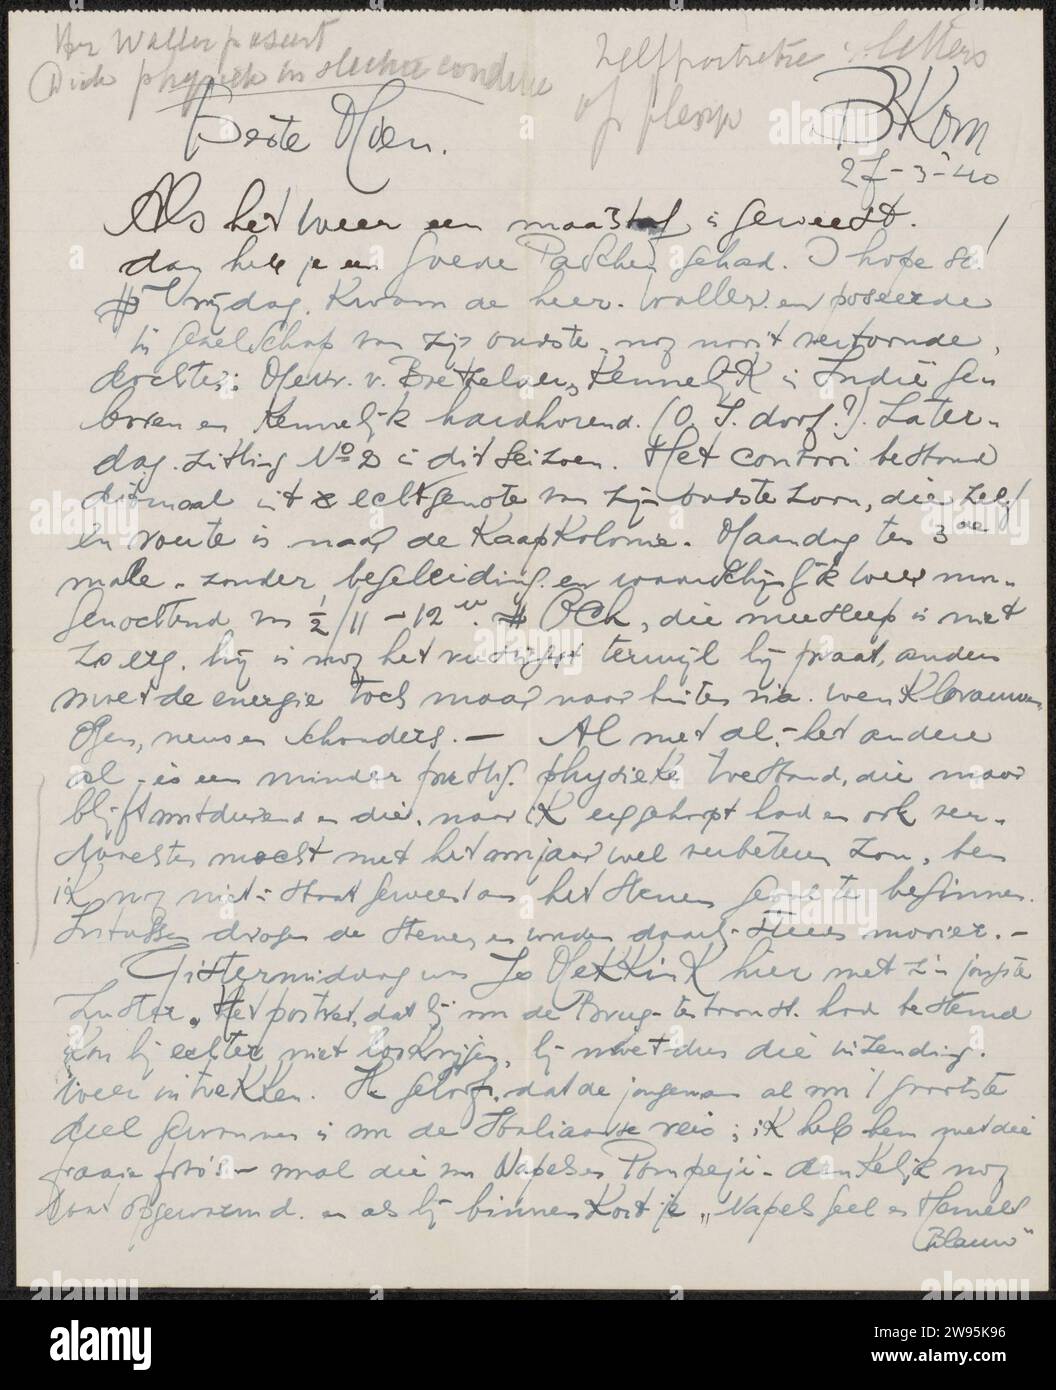 Hr Waller poseert
Dick physiek in slechte conditie
Zelfportretten: letters
of plexp
BKom
27-3-'40
Beste Mien.
Als het weer een maatstaf is geweest.
dan heb je een goede Paschen gehad. I hope so!
Vrijdag. Kwam de heer. Waller. en poseerde
in gezelschap van zijn oudste, nog nooit vertoonde,
dochter: Mevr. v. Kennelijk in Indië ge-
boren en kennelijk hardhorend. (O. I. doof?). Zater-
dag. zitting No 2 in dit seizoen. Het convooi bestond
ditmaal uit echtgenote van zijn oudste zoon, die zelf
en route is naar de Kaapkolonie. Maandag ten 3de
male. zonder begeleiding. en waarschijnlijk weer mor-
genochtend van ½/11 - 12 u. Och, die nasleep is niet
zo erg. hij is nog het rustigst terwijl hij praat, anders
moet de energie toch maar naar buiten via. wenkbrauwen
Ogen, neus en schouders. — Al met al, - het andere
al - is een minder prettig. physieke toestand, die maar
blijft voortduren en die. naar ik erg gehoopt had en ook ver-
wachten mocht met het voorjaar wel verbeteren zou, ben
ik nog niet in staat geweest aan het stenen goed te beginnen.
Intussen drogen de stenen, en worden daarbij steeds mooier. —
Gistermiddag was Jo hier met z'n jongste
zuster. Het portret, dat hij van de Brug had bestemd
kon hij echter niet loskrijgen, hij moet dus die inzending.
weer intrekken. Ik geloof, dat de jongeman al om 't grootste
deel gewonnen is voor de Italiaanse reis; ik heb hem met die
fraaie foto's - mal die van Napels en Pompeji - dankelijk nog
wat opgewarmd. en als hij binnenkort je „Napels geel en Hemels
Blauw"
alamy
Image ID: 2W95K96
www.alamy.com